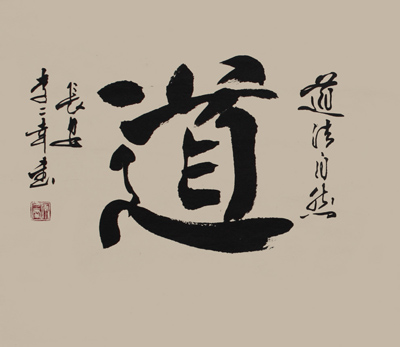 道法自然
道
長安
李二章書